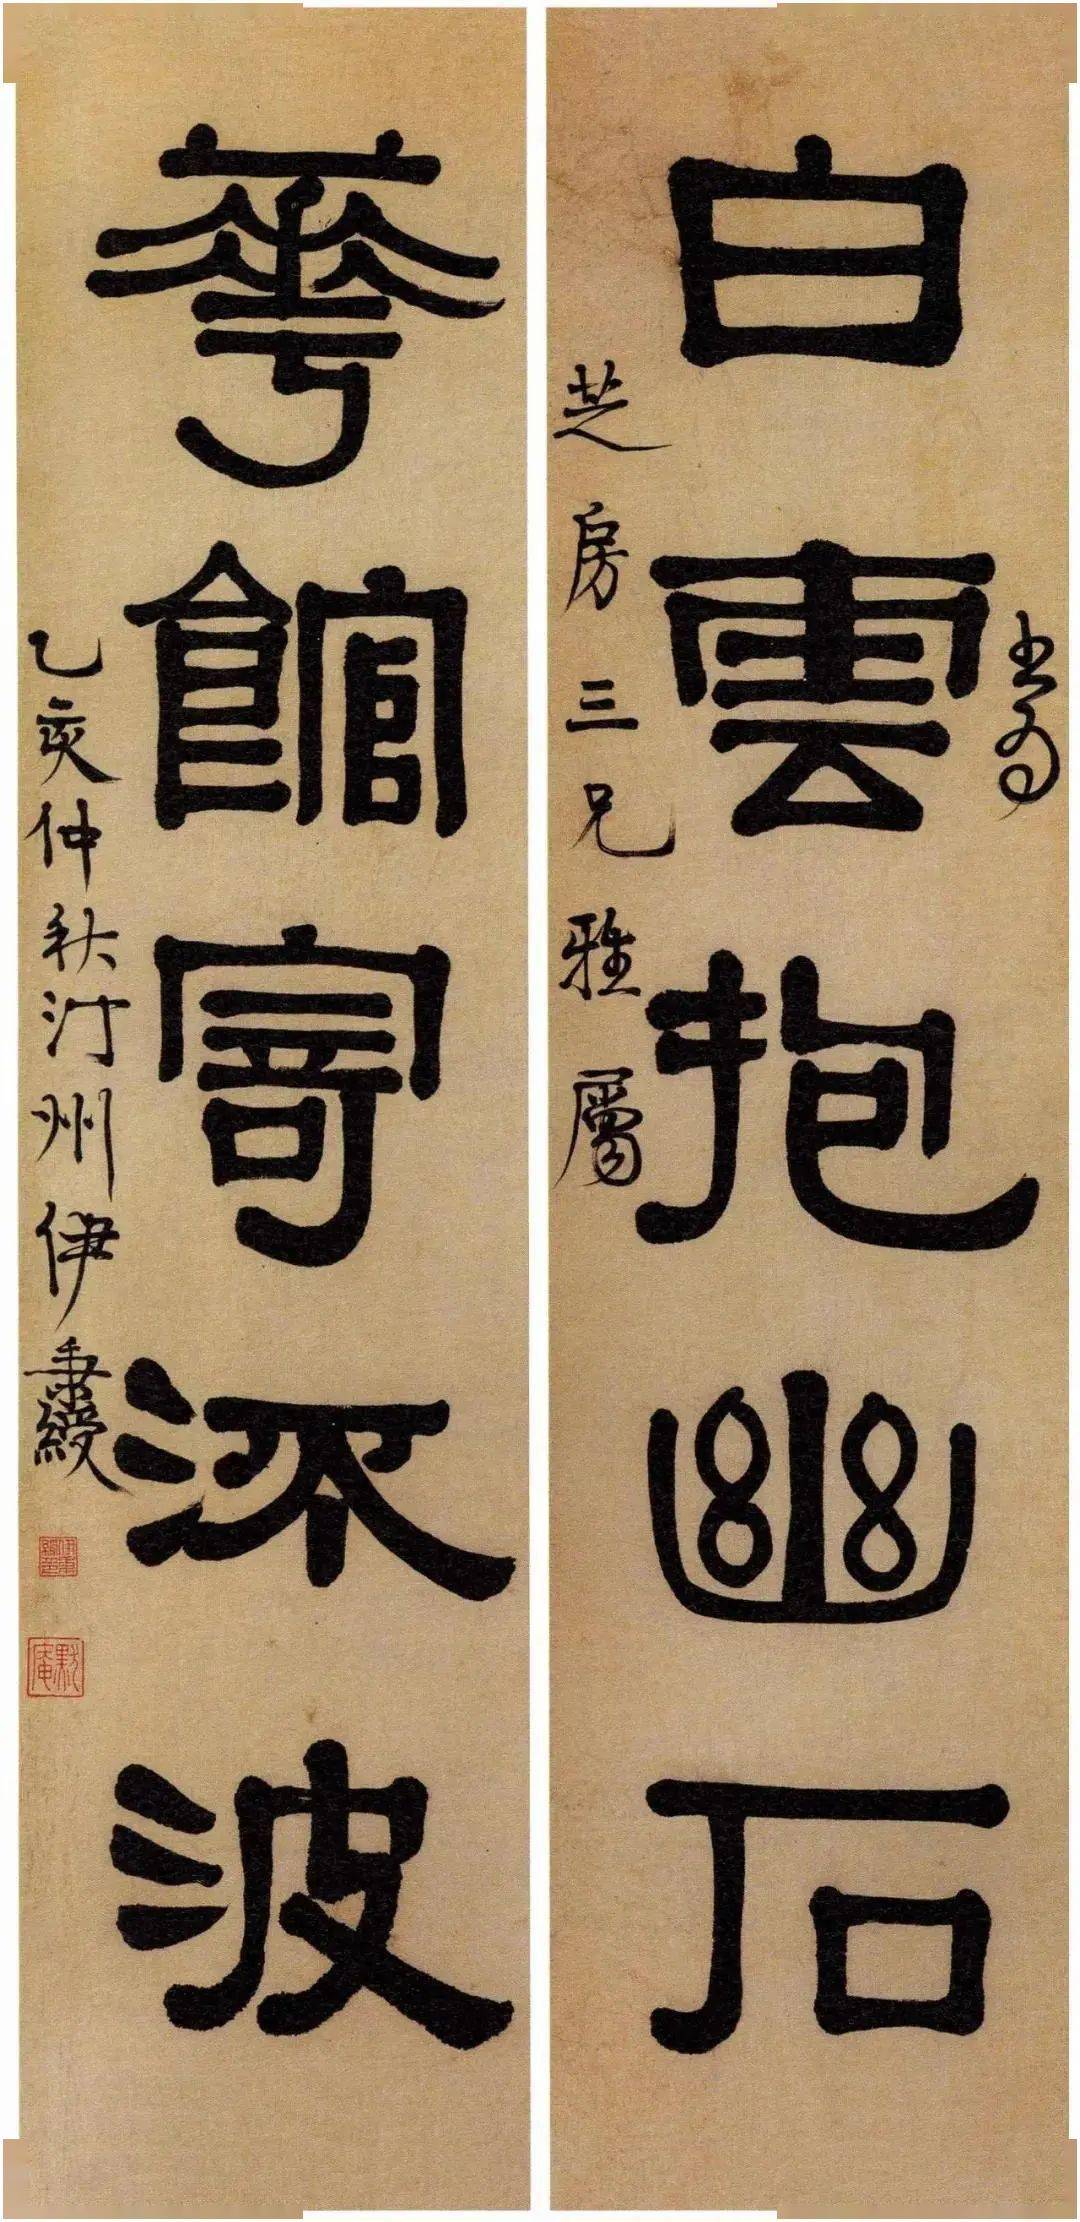 書為
白雲抱幽石
芝房三兄雅屬
華館寄㳅波
乙亥仲秋汀州伊秉綬
默庵